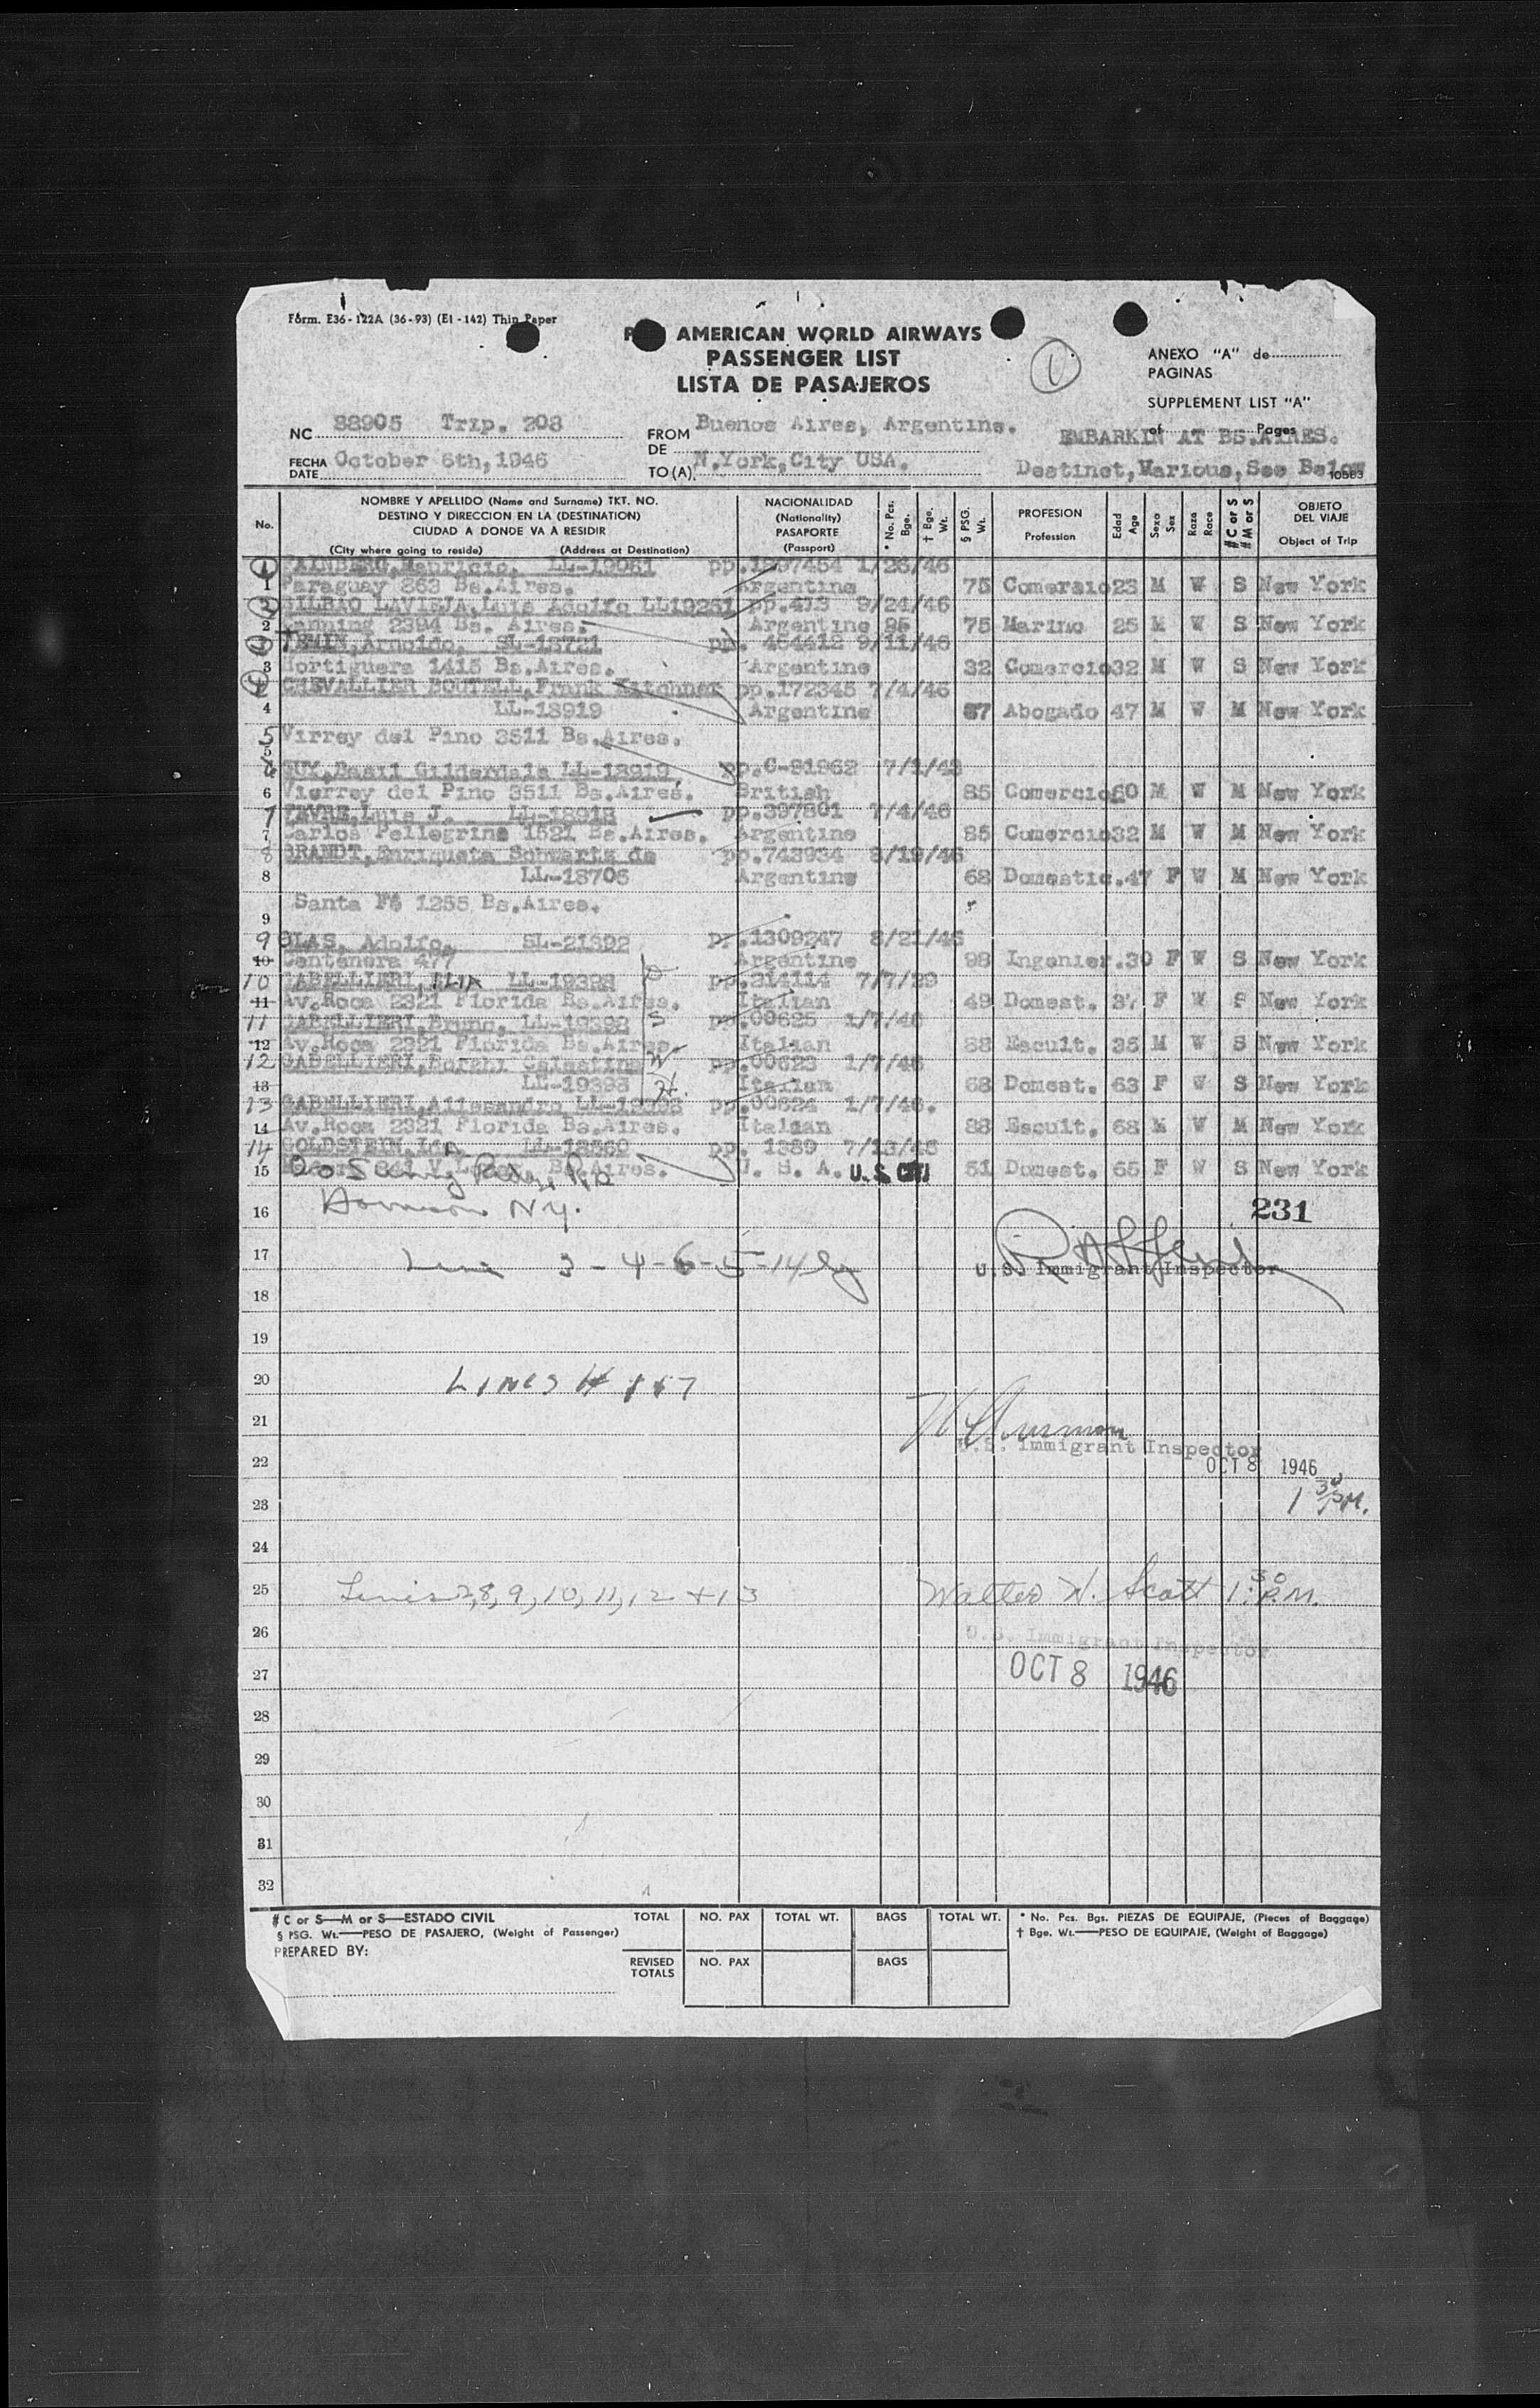 Form. E36-122A (36-93) (EI-142) Thin Paper
AMERICAN WORLD AIRWAYS
PASSENGER LIST
LISTA DE PASAJEROS
ANEXO "A" de
PAGINAS
SUPPLEMENT LIST "A"
of Pages
NC 88905 Trip. 203
FROM DE Buenos Aires, Argentina.
EMBARKIN AT BS.AIRES.
FECHA DATE October 6th, 1946
TO (A) N.York, City USA.
Destinct, Various, See Below
10563
No.
NOMBRE Y APELLIDO (Name and Surname) TKT. NO.
DESTINO Y DIRECCION EN LA (DESTINATION)
CIUDAD A DONDE VA A RESIDIR
(City where going to reside) (Address at Destination)
NACIONALIDAD (Nationality) PASAPORTE (Passport)
* No. Pcs. Bge.
† Bge. Wt.
§ PSG. Wt.
PROFESION Profession
Edad Age
Sexo Sex
Raza Race
# C or S # M or S
OBJETO DEL VIAJE Object of Trip
FAINBERG, Mauricio. LL-19061 pp.1397464 1/26/46
1 Paraguay 863 Bs.Aires. Argentine 75 Comercio 23 M W S New York
BILBAO LAVIEJA, Luis Adolfo LL19261 pp.413 9/24/46
2 Canning 2394 Bs. Aires. Argentine 75 Marino 25 M W S New York
TEMIN, Arnoldo. SL-18721 pp. 464412 9/11/46
3 Hortiguera 1415 Bs.Aires. Argentine 32 Comercio 32 M W S New York
CHEVALLIER BOUTELL, Frank Kitchner pp.172345 7/4/46
4 LL-18919 Argentine 67 Abogado 47 M W M New York
5 Virrey del Pino 3511 Bs.Aires.
GUY, Basil Gilderdale LL-18919 pp.C-91962 7/1/43
6 Vierrey del Pino 3511 Bs.Aires. British 85 Comercio 60 M W M New York
7 FAVRE, Luis J. LL-18918 pp.397801 7/4/46
7 Carlos Pellegrine 1521 Bs.Aires. Argentine 85 Comercio 32 M W M New York
8 BRANDT, Enriqueta Schwartz de pp.743934 8/19/46
8 LL-18706 Argentine 68 Domestic. 47 F W M New York
Santa Fé 1255 Bs.Aires.
9
9 OLAS, Adolfo. SL-21392 pp.1309247 8/21/46
10 Centenera 477 Argentine 98 Ingenier. 30 F W S New York
10 GABELLIERI, ELIA LL-19398 pp.314114 7/7/39
11 Av.Roca 2321 Florida Bs.Aires. Italian 49 Domest. 37 F W S New York
11 GABELLIERI, Bruno. LL-19392 pp.00625 1/7/46
12 Av.Roca 2321 Florida Bs.Aires. Italian 88 Escult. 35 M W S New York
12 GABELLIERI, Borghi Celestina pp.00623 1/7/46
13 LL-19393 Italian 68 Domest. 63 F W S New York
13 GABELLIERI, Allesandro LL-19393 pp.00624 1/7/46.
14 Av.Roca 2321 Florida Bs.Aires. Italian 88 Escult. 68 M W M New York
14 GOLDSTEIN, Ida LL-18360 pp. 1389 7/13/45
15 Bs.Aires. U. S. A. U.S. CIT 51 Domest. 65 F W S New York
16 N.Y. 231
17 3-4-6-5-14
U.S. Immigrant Inspector
18
19
20 LINES # 1 & 7
21
U.S. Immigrant Inspector
22 OCT 8 1946
23 1 30 P.M.
24
25 Lines 2, 8, 9, 10, 11, 12 + 13 Walter N. Scott 1:30 P.M.
26 U.S. Immigrant Inspector
27 OCT 8 1946
28
29
30
31
32
# C or S—M or S—ESTADO CIVIL
§ PSG. Wt.—PESO DE PASAJERO, (Weight of Passenger)
PREPARED BY:
TOTAL NO. PAX TOTAL WT. BAGS TOTAL WT.
REVISED TOTALS NO. PAX BAGS
* No. Pcs. Bgs. PIEZAS DE EQUIPAJE, (Pieces of Baggage)
† Bge. Wt.—PESO DE EQUIPAJE, (Weight of Baggage)